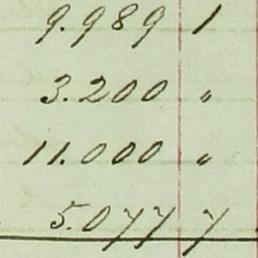 9.989 1
3.200 "
11.000 "
5.077 7